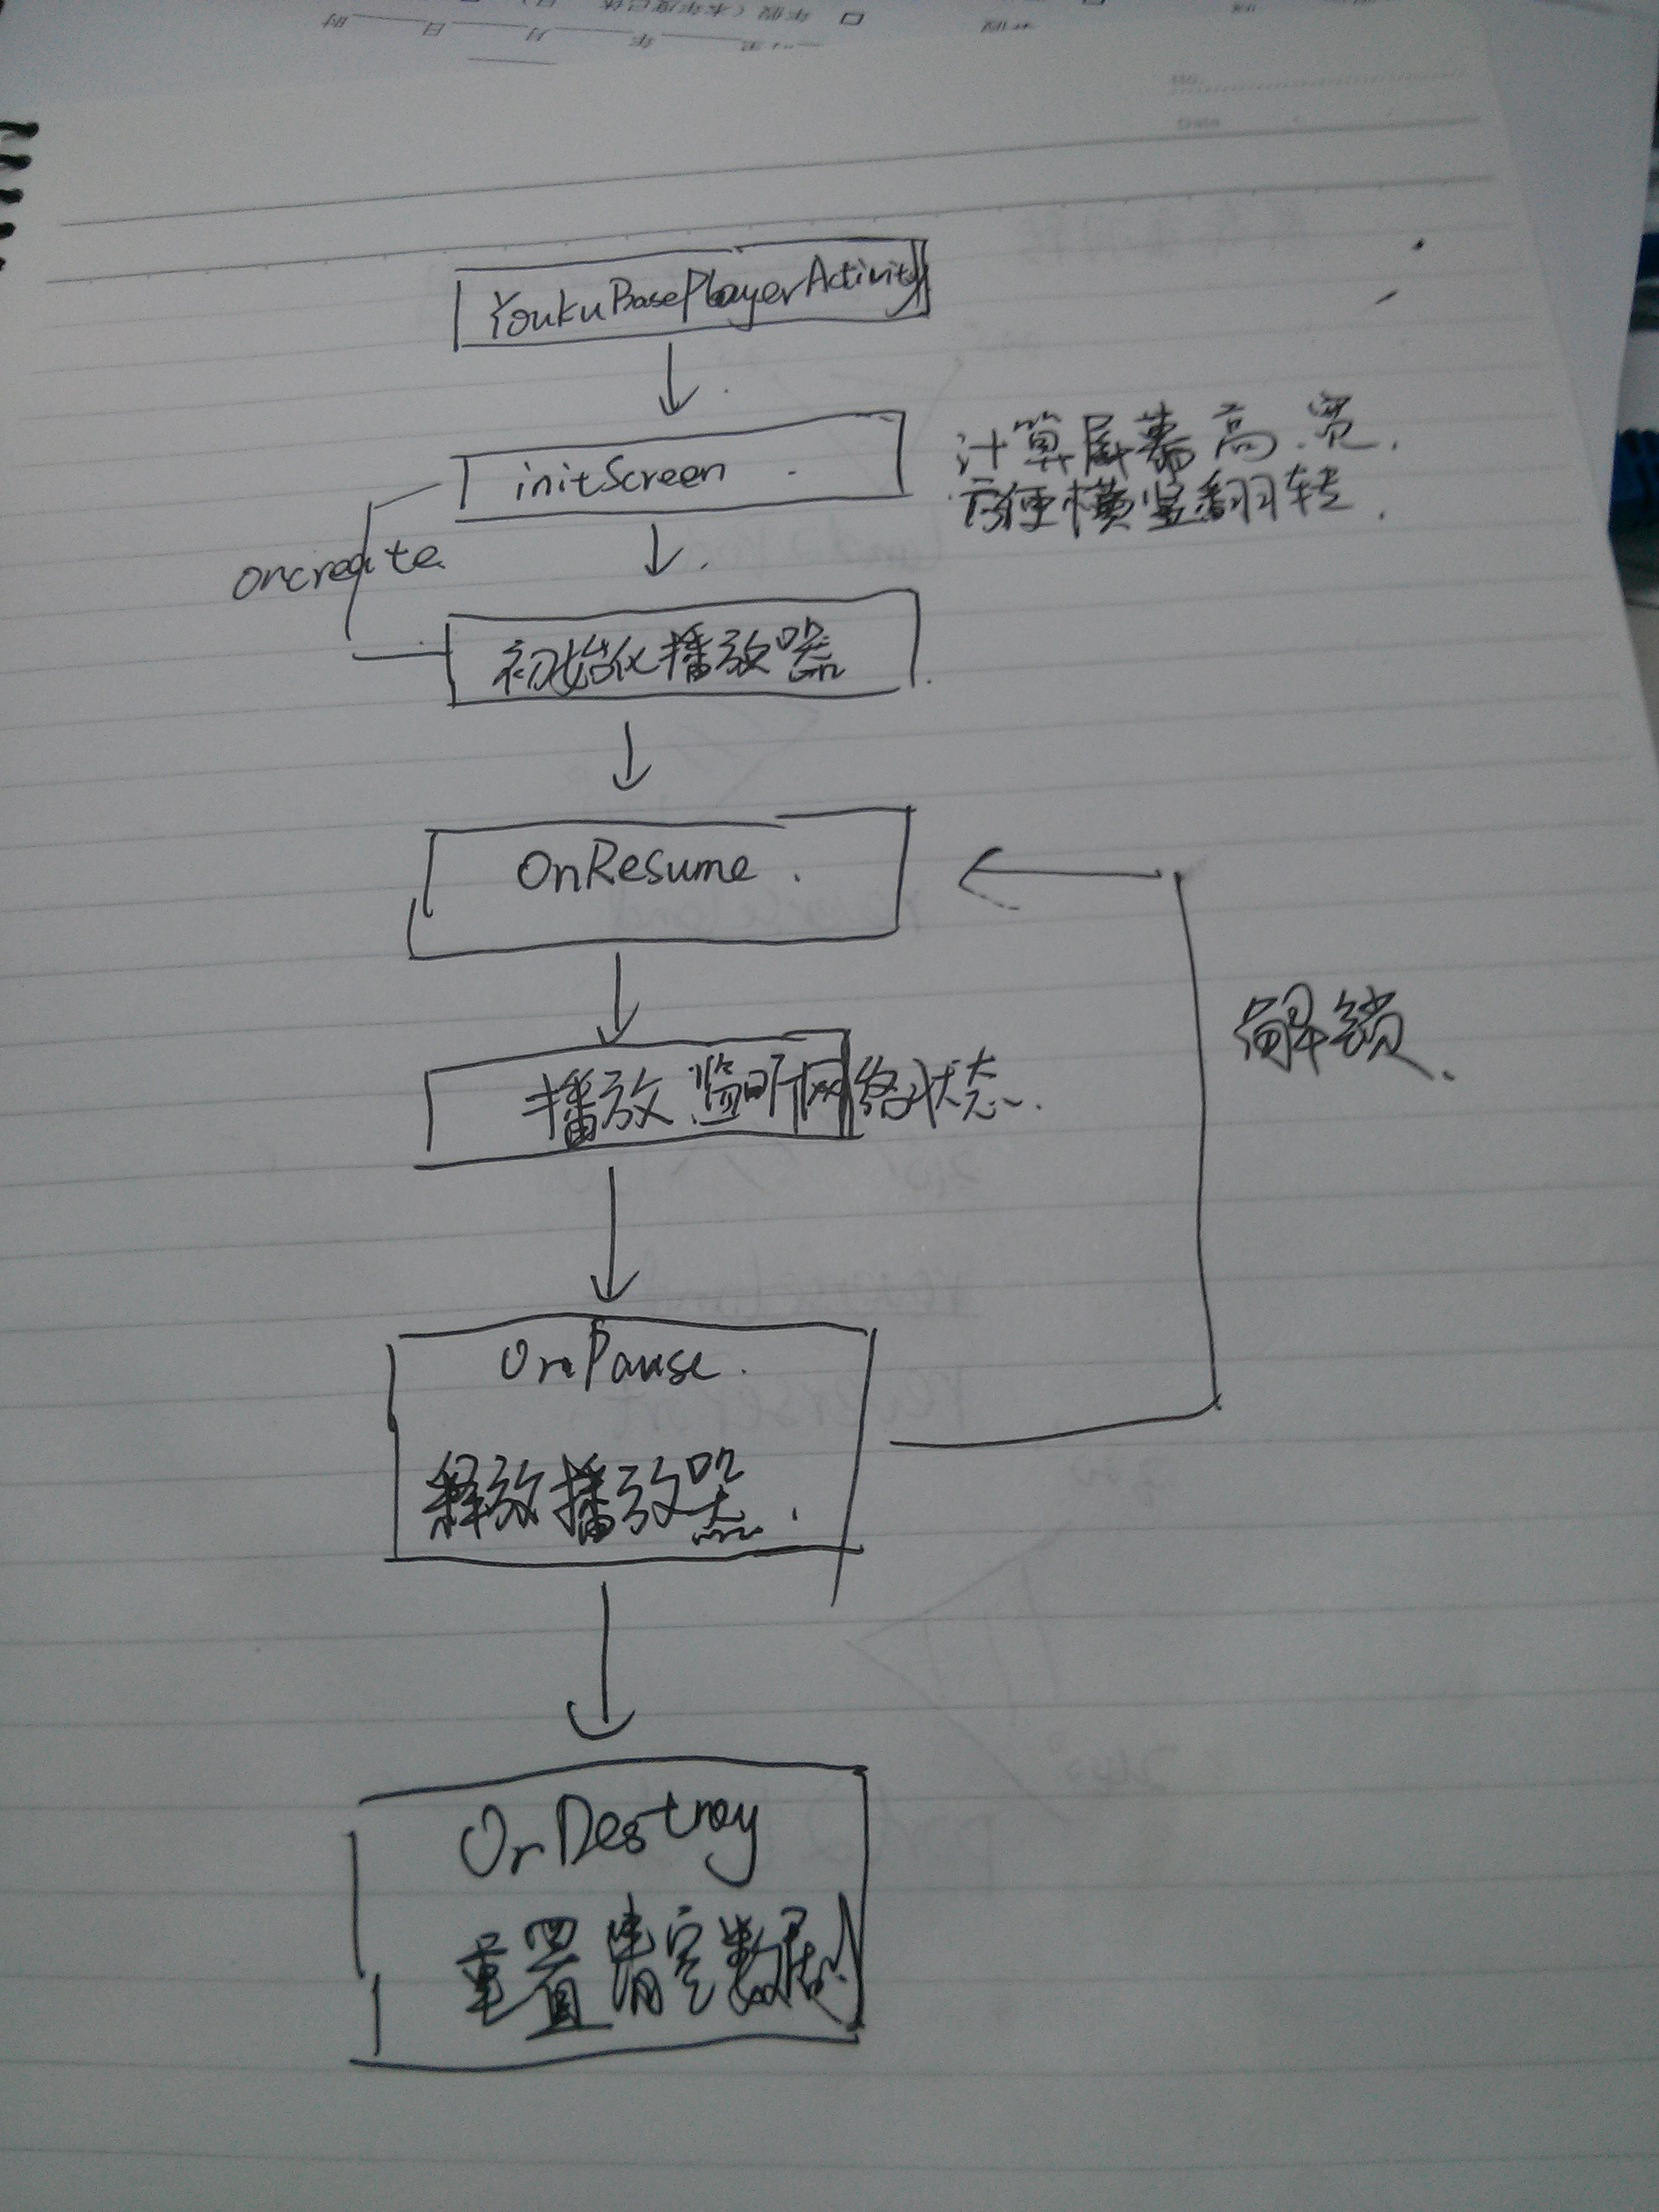 YoukuBasePlayerActivity
initScreen
计算屏幕高.宽.
方便横竖翻转.
oncreate
初始化播放器
OnResume
解锁
播放 监听网络状态
OnPause
释放播放器
OnDestroy
重置 清空数据